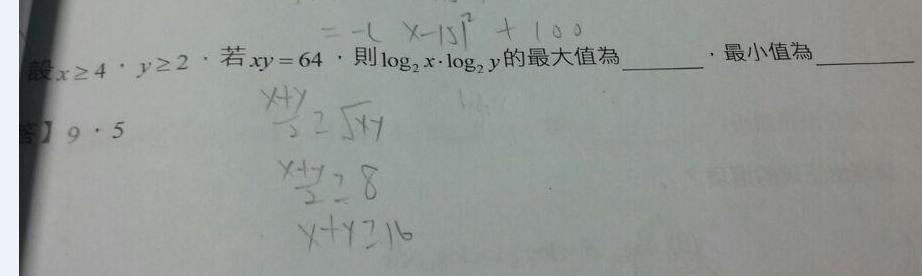 = -( x-15)² + 100
設 x ≥ 4,y ≥ 2,若 xy = 64,則 log₂ x · log₂ y 的最大值為______,最小值為______
答】9,5
x+y/2 ≥ √xy
x+y/2 ≥ 8
x+y ≥ 16